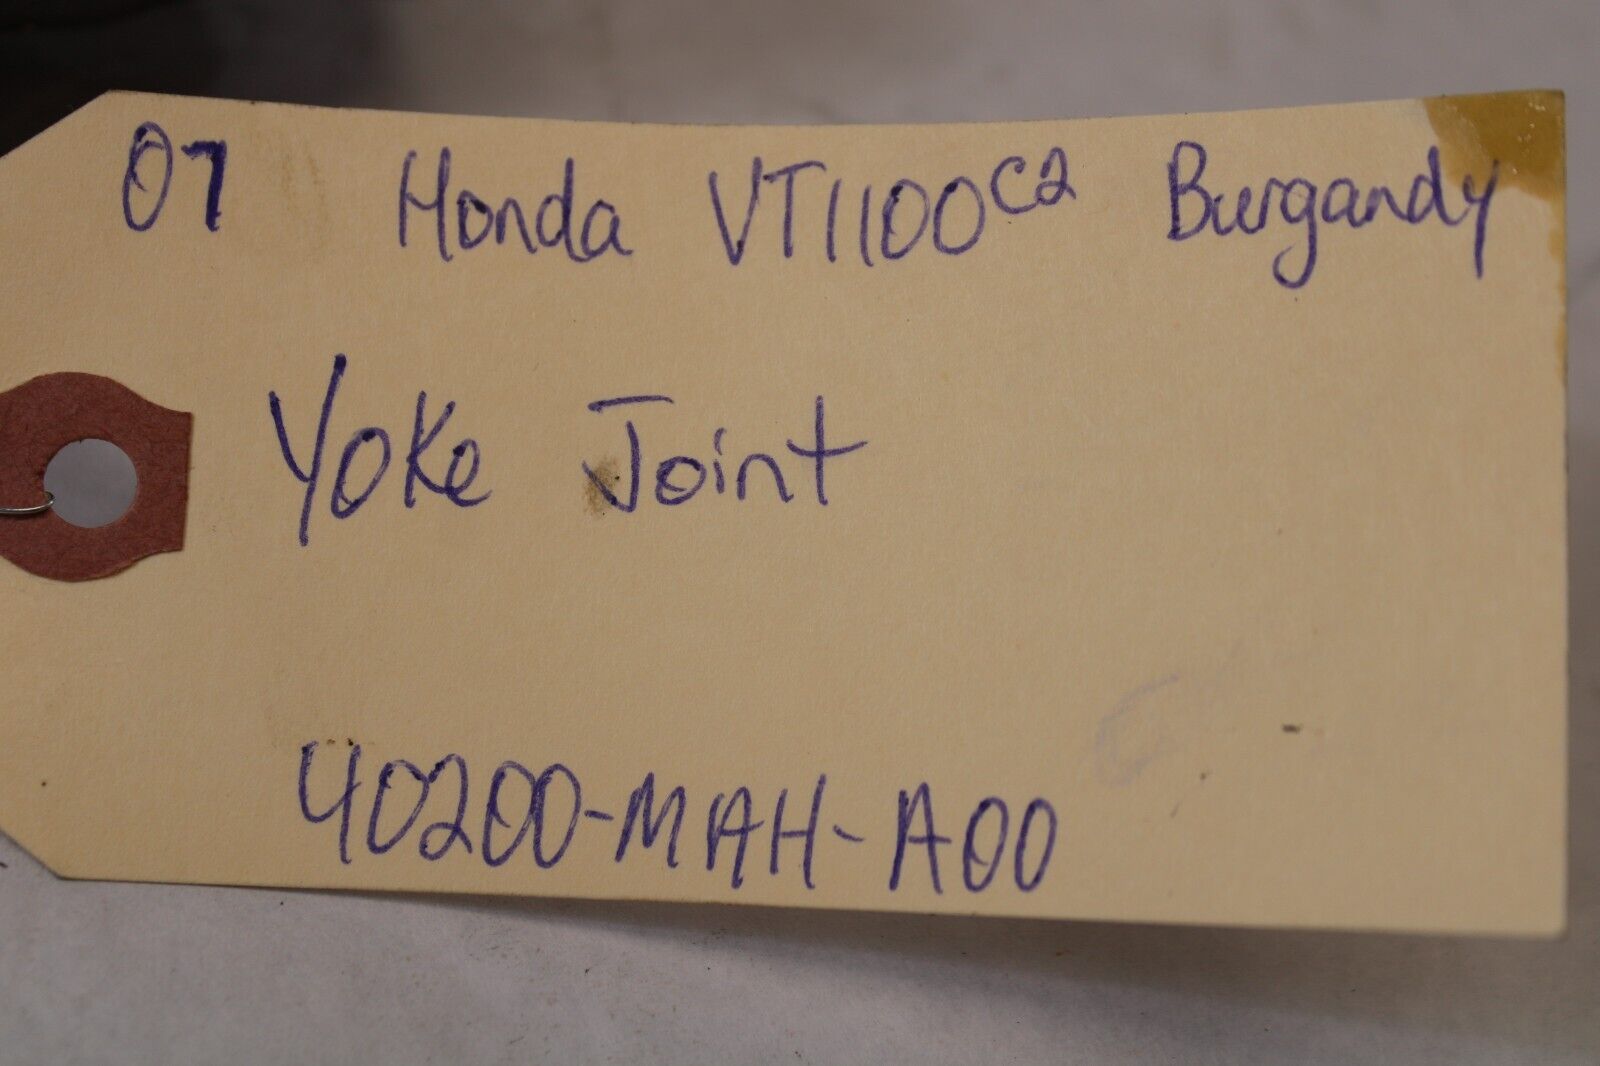 07 Honda VT1100C2 Burgandy
Yoke Joint
40200-MAH-A00